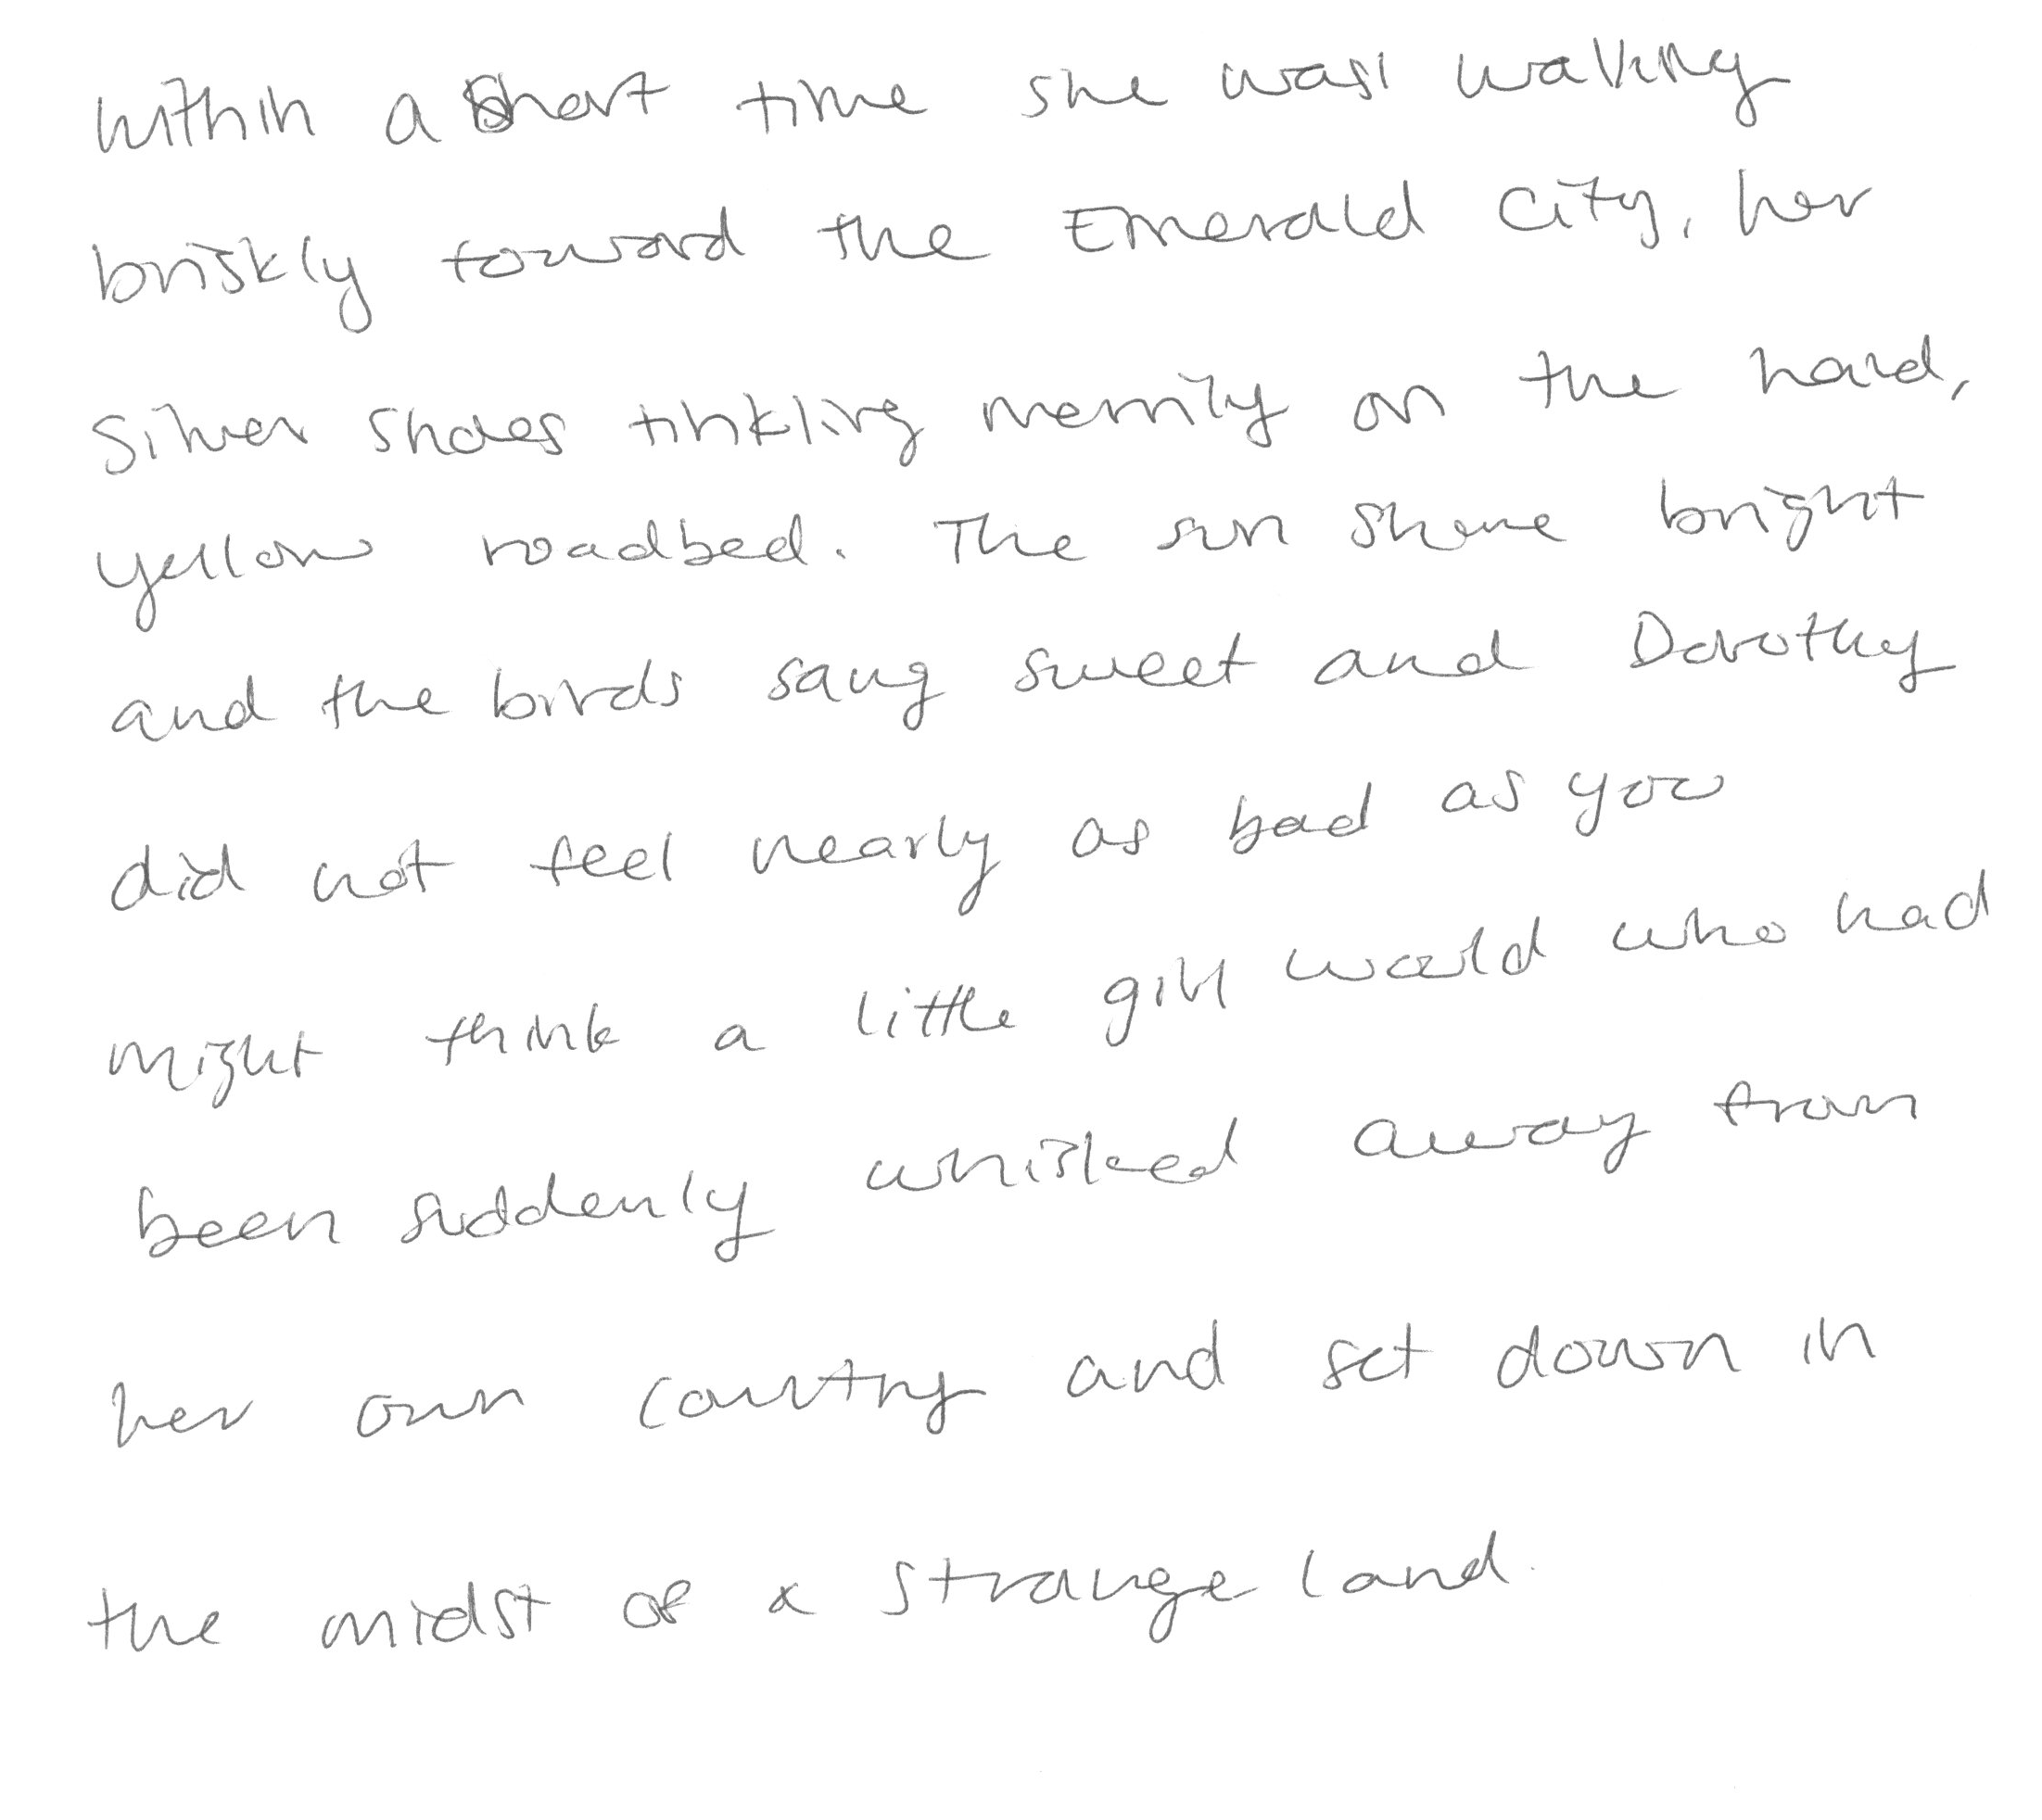 within a short time she was walking
briskly toward the Emerald City, her
Silver Shoes tinkling merrily on the hard,
yellow roadbed. The sun shone bright
and the birds sang sweet and Dorothy
did not feel nearly as bad as you
might think a little girl would who had
been suddenly whisked away from
her own country and set down in
the midst of a strange land.